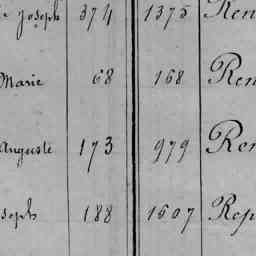 Joseph 374 1375 Ren
Marie 68 168 Ren
Auguste 173 979 Ren
seph 188 1607 Rep